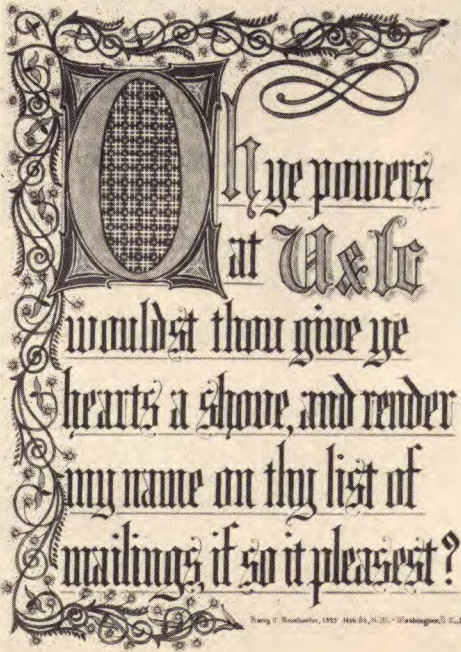 Oh ye powers
at U&lc
wouldst thou give ye
hearts a shove, and render
my name on thy list of
mailings, if so it pleasest?
14th St., N.W. - Washington, D.C.